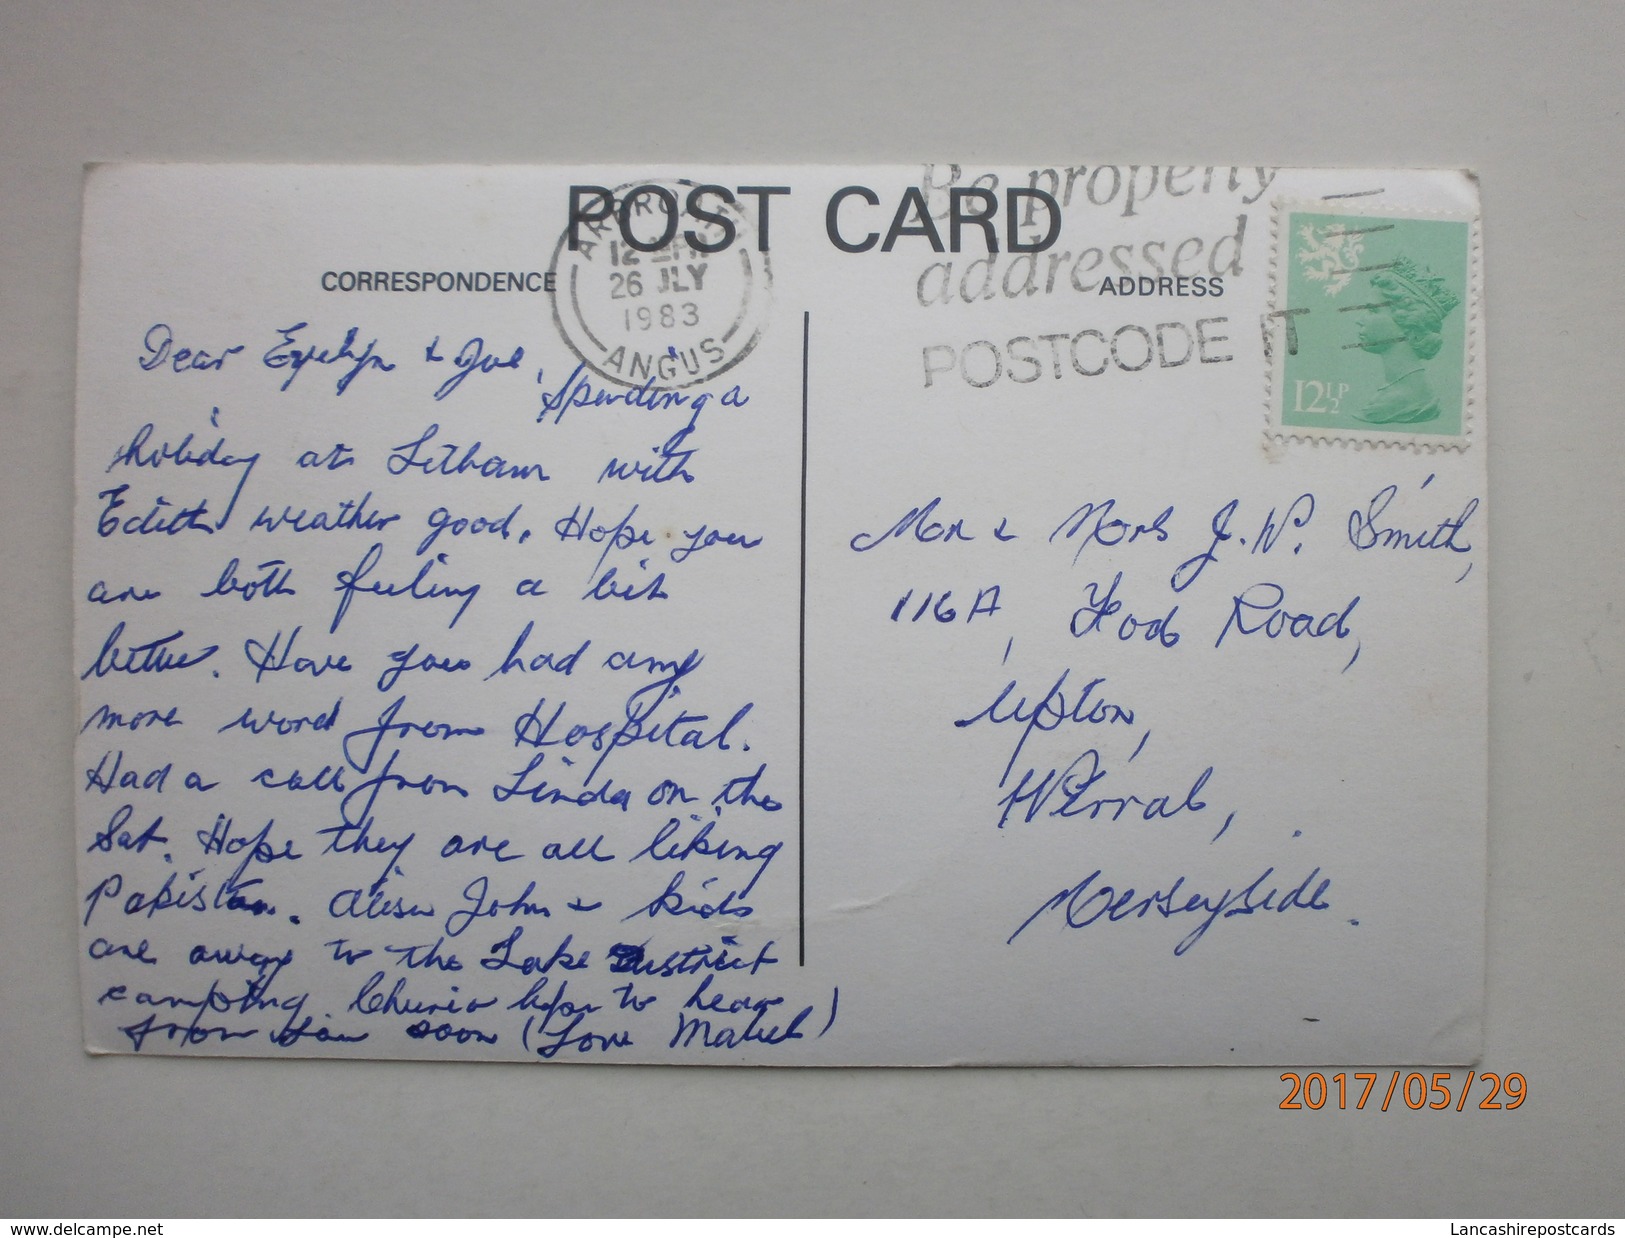 POST CARD
CORRESPONDENCE
ADDRESS
ARBROATH
12
26 JLY
1983
ANGUS
Be properly
addressed
POSTCODE IT
12½P
Dear Evelyn & Joe,
Spending a
holiday at Letham with
Edith weather good. Hope you
are both feeling a bit
better. Have you had any
more word from Hospital.
Had a call from Linda on the
Sat. Hope they are all liking
Pakistan. John & kids
are away to the Lake District
camping. Cheerio hope to hear
from you soon (Love Mabel)
Mr & Mrs J. W. Smith,
116A, Road,
Upton,
Wirral,
Merseyside.
2017/05/29
www.delcampe.net
Lancashirepostcards